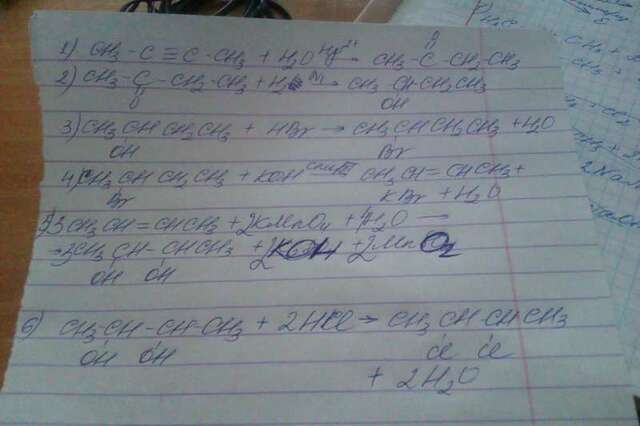 O
1) CH₃-C≡C-CH₃ + H₂O Hg²⁺→ CH₃-C-CH₂CH₃
2) CH₃-C-CH₂-CH₃ + H₂ Ni→ CH₃ CH CH₂CH₃
O OH
3) CH₃CH CH₂CH₃ + HBr → CH₃CHCH₂CH₃ + H₂O
OH Br
4) CH₃CH CH₂CH₃ + KOH спирт→ CH₃CH=CHCH₃+
Br KBr + H₂O
5) 3CH₃CH=CHCH₃ + 2KMnO₄ + 4H₂O →
→ 3CH₃CH-CHCH₃ + 2KOH + 2MnO₂
OH OH
6) CH₃-CH-CH-CH₃ + 2HCl → CH₃CHCHCH₃
OH OH Cl Cl
+ 2H₂O